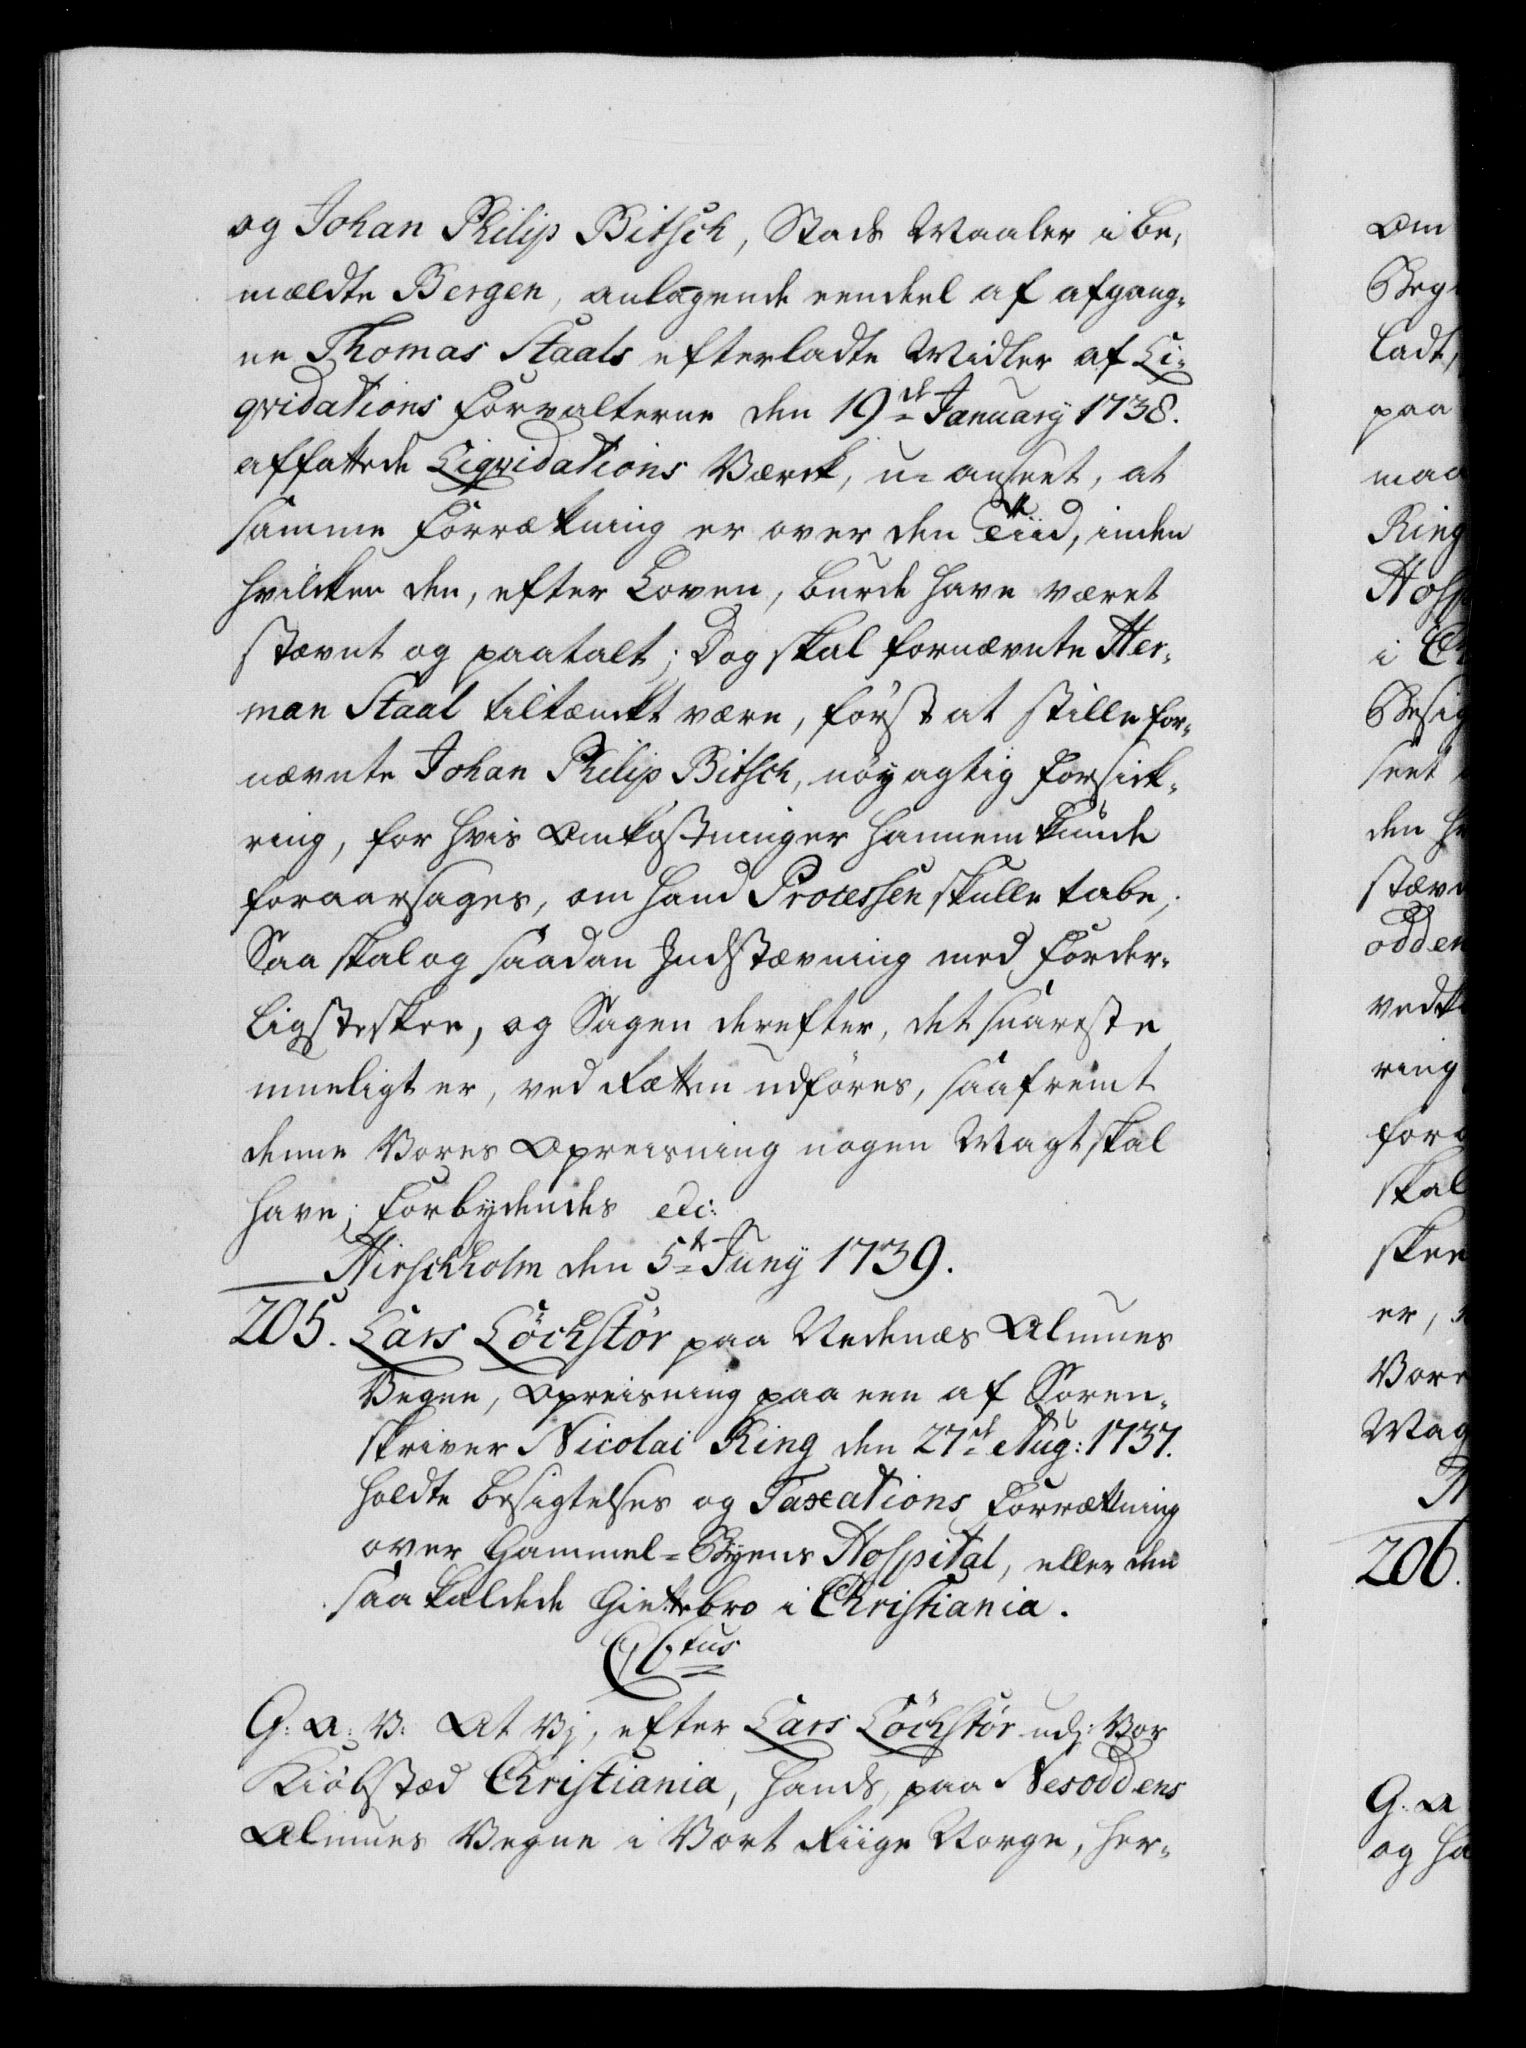 og Johan Philip Bitsch, Stads Maaler i be-
mældte Bergen, anlagende eendeel af afgang-
ne Thomas Staals efterladte Midler af Li-
qvidations Forvalterne den 19de January 1738.
affattede Liqvidations Værck, u-anseet, at
samme Forrætning er over den Tiid, inden
hvilcken den, efter Loven, burde have været
stævnt og paatalt; Dog skal fornævnte Her-
man Staal tiltænckt være, først at stille for-
nævnte Johan Philip Bitsch, nöyagtig Forsick-
ring, for hvis Omkostninger hannem kunde
foraarsages, om hand Processen skulle tabe;
Saa skal og saadan Indstævning med Forder-
ligste skee, og Sagen derefter, det snareste
mueligt er, ved Rætten udföres, saafremt
denne Vores Opreisning nogen Magt skal
have; Forbydendes etc:
Hirschholm den 5te Juny 1739.
205. Lars Löchstör paa Nedenæs Almues
Vegne, Opreisning paa een af Soren-
skriver Nicolai Ring den 27de Aug: 1737.
holdte Besigtelses og Taxations Forrætning
over Gammel-Byens Hospital, eller den
saa kaldede Giettebro i Christiania.
C 6tus
G: A: V: At Vj, efter Lars Löchstör udj Vor
Kiöbstæd Christiania, hands, paa Nesoddens
Almues Vegne i Vort Riige Norge, her-
Om
ladt,
paa
Ring
i
seet
den
odden
ring
skal
skee
er,
206.
G: A
og ha